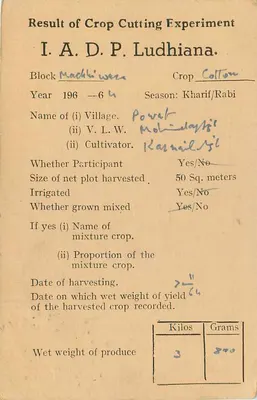 Result of Crop Cutting Experiment
I. A. D. P. Ludhiana.
Block Machhiwara Crop Cotton
Year 196 —64 Season: Kharif/Rabi
Name of (i) Village. Powat
(ii) V. L. W. Mohindarjit
(ii) Cultivator. Karnail Singh
Whether Participant Yes/No
Size of net plot harvested 50 Sq. meters
Irrigated Yes/No
Whether grown mixed Yes/No
If yes (i) Name of
mixture crop.
(ii) Proportion of the
mixture crop.
Date of harvesting.
Date on which wet weight of yield 64
of the harvested crop recorded.
Kilos Grams
Wet weight of produce 3 800